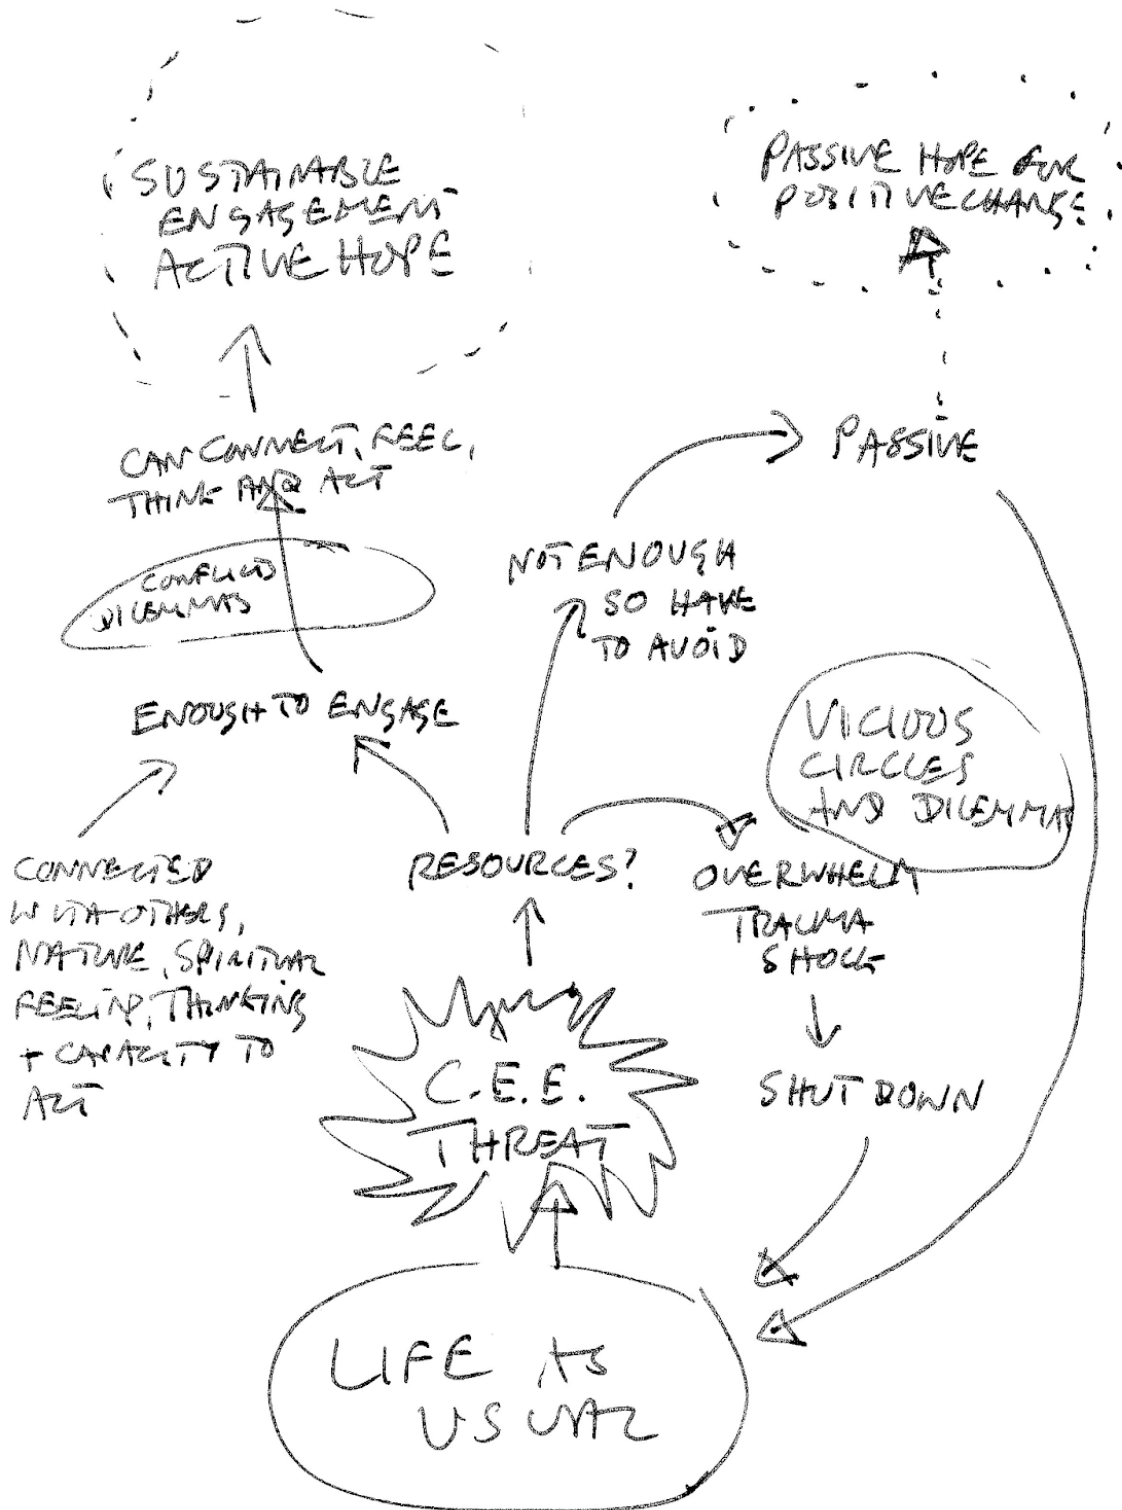 SUSTAINABLE
ENGAGEMENT
ACTIVE HOPE
PASSIVE HOPE FOR
POSITIVE CHANGE
CAN CONNECT, FEEL,
THINK AND ACT
PASSIVE
CONFLICTS
DILEMMAS
NOT ENOUGH
SO HAVE
TO AVOID
ENOUGH TO ENGAGE
VICIOUS
CIRCLES
AND DILEMMAS
CONNECTED
WITH OTHERS,
NATURE, SPIRITUAL
FEELING, THINKING
+ CAPACITY TO
ACT
RESOURCES?
OVERWHELM
TRAUMA
SHOCK
SHUT DOWN
C.E.E.
THREAT
LIFE AS
USUAL